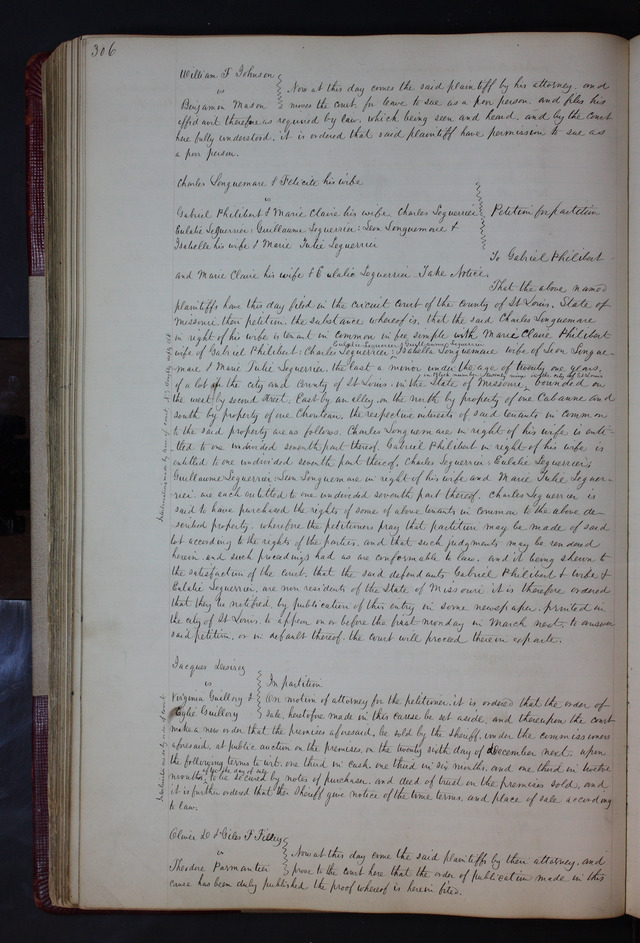 306
William F Johnson
vs
Benjamin Mason
Now at this day comes the said plaintiff by his attorney, and
moves the court for leave to sue as a poor person and files his
affidavit therefore as required by law, which being seen and heard, and by the court
here fully understood, it is ordered that said plaintiff have permission to sue as
a poor person.
Charles Longuemare & Felicite his wife
vs
Gabriel Philibert & Marie Claire his wife Charles Leguerrier
Eulalie Leguerrier: Guillaume Leguerrier: Leon Longuemare &
Isabella his wife & Marie Julie Leguerrier
Petition for partition
To Gabriel Philibert
and Marie Claire his wife & Eulalie Leguerrier Take Notice.
That the above named
plaintiffs have this day filed in the circuit court of the county of St Louis, State of
Missouri their petition, the substance whereof is, that the said Charles Longuemare
in right of his wife is tenant in common in fee simple with Marie Claire Philibert
Eulalie Leguerrier; Guillaume Leguerrier
wife of Gabriel Philibert: Charles Leguerrier; Isabella Longuemare wife of Leon Longue-
mare & Marie Julie Leguerrier, the last a minor under the age of twenty one years,
in block number twenty nine in the city of St Louis
of a lot in the city and county of St Louis, in the State of Missouri, bounded on
the west by second street, East by an alley, on the north by property of one Cabanne and
south by property of one Chouteau, the respective interests of said tenants in common
to the said property are as follows. Charles Longuemare in right of his wife is enti-
tled to one undivided seventh part thereof, Gabriel Philibert in right of his wife is
entitled to one undivided seventh part thereof, Charles Leguerrier: Eulalie Leguerrier;
Guillaume Leguerrier: Leon Longuemare in right of his wife and Marie Julie Leguer-
rier. are each entitled to one undivided seventh part thereof. Charles Leguerrier is
said to have purchased the rights of some of above tenants in common to the above de-
scribed property. wherefore the petitioners pray that partition may be made of said
lot according to the rights of the parties, and that such judgments may be rendered
herein and such proceedings had as are conformable to law, and it being shewn to
the satisfaction of the court, that the said defendants Gabriel Philibert & wife &
Eulalie Leguerrier, are non residents of the State of Missouri it is therefore ordered
that they be notified by publication of this entry in some newspaper, printed in
the city of St Louis, to appear on or before the first monday in March next, to answer
said petition, or in default thereof, the court will proceed therein exparte.
Jacques Desirez
vs
Virginia Guillory &
Eglee Guillory
In partition
On motion of attorney for the petitioner, it is ordered that the order of
sale, heretofore made in this cause be set aside, and thereupon the court
make a new order that the premises aforesaid, be sold by the sheriff, under the commissioners
aforesaid, at public auction on the premises, on the twenty sixth day of December next, upon
the following terms to wit. one third in cash, one third in six months, and one third in twelve
after the day of sale
months, to be secured by notes of purchaser, and deed of trust on the premises sold, and
it is further ordered that the Sheriff give notice of the time terms, and place of sale according
to law.
Oliver D & Giles F Filley
vs
Theodore Parmantier
Now at this day come the said plaintiffs by their attorney, and
prove to the court here that the order of publication made in this
cause has been duly published the proof whereof is herein filed.